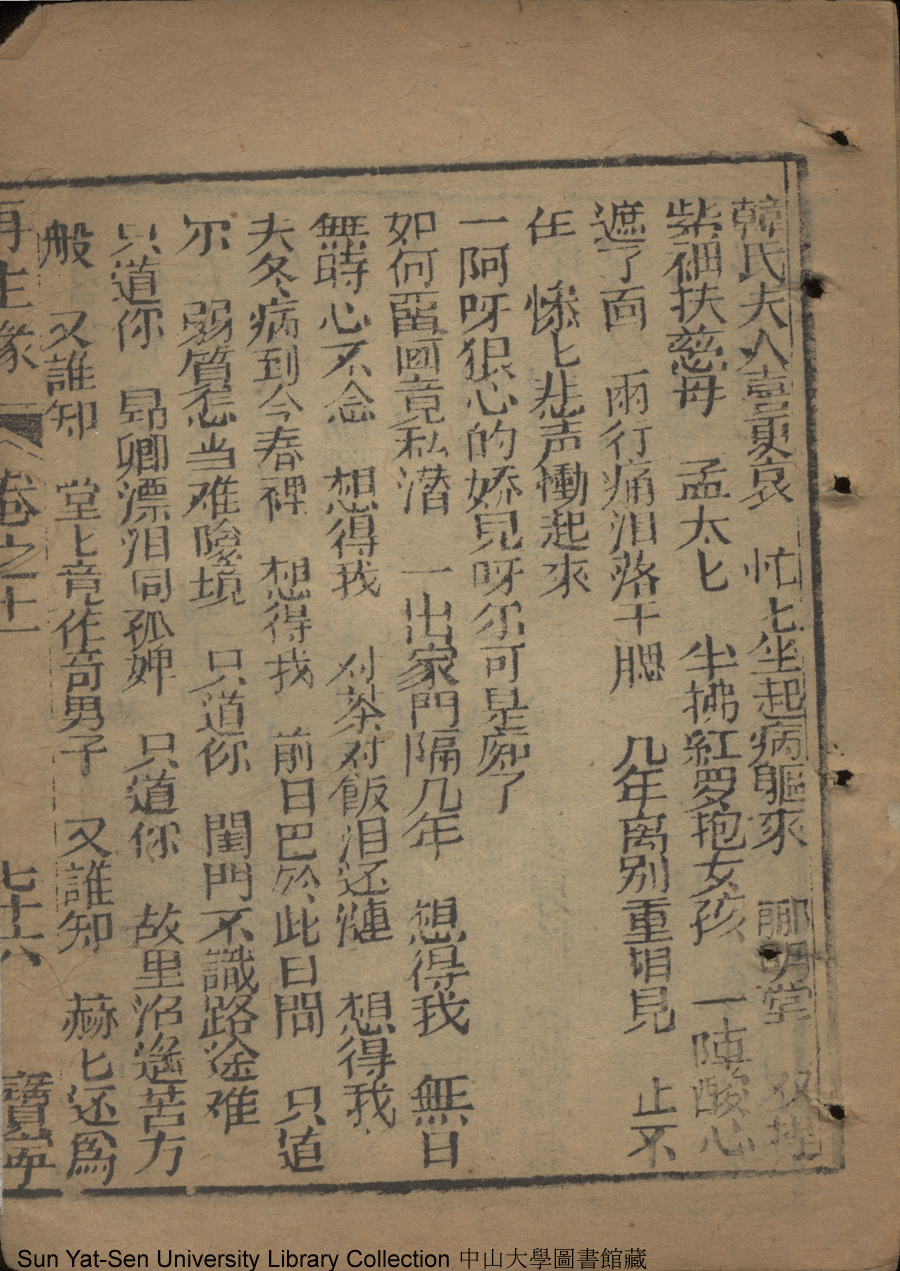 韓氏夫人喜更哀　忙七坐起病軀來　酈明堂　双捲
紫袖扶慈母　孟太匕　半拂紅罗抱女孩　一陣酸心
遮了面　兩行痛泪落千腮　几年离别重相見　止不
住　慘匕悲声慟起來
一阿呀狠心的嬌兒呀尔可是痴了
如何畱画竟私潜　一出家門隔几年　想得我　無日
無時心不念　想得我　对茶对飯泪还漣　想得我
夫冬病到今春裡　想得我　前日巴於此日間　只道
尔　弱質怎当难险境　只道你　閨門不識路途难
只道你　昂卿漂泪同孤婢　只道你　故里沼遙苦万
般　又誰知　堂七竟作奇男子　又誰知　赫匕还為
再生緣　卷之十一　七十六　寶寧
Sun Yat-Sen University Library Collection 中山大學圖書館藏